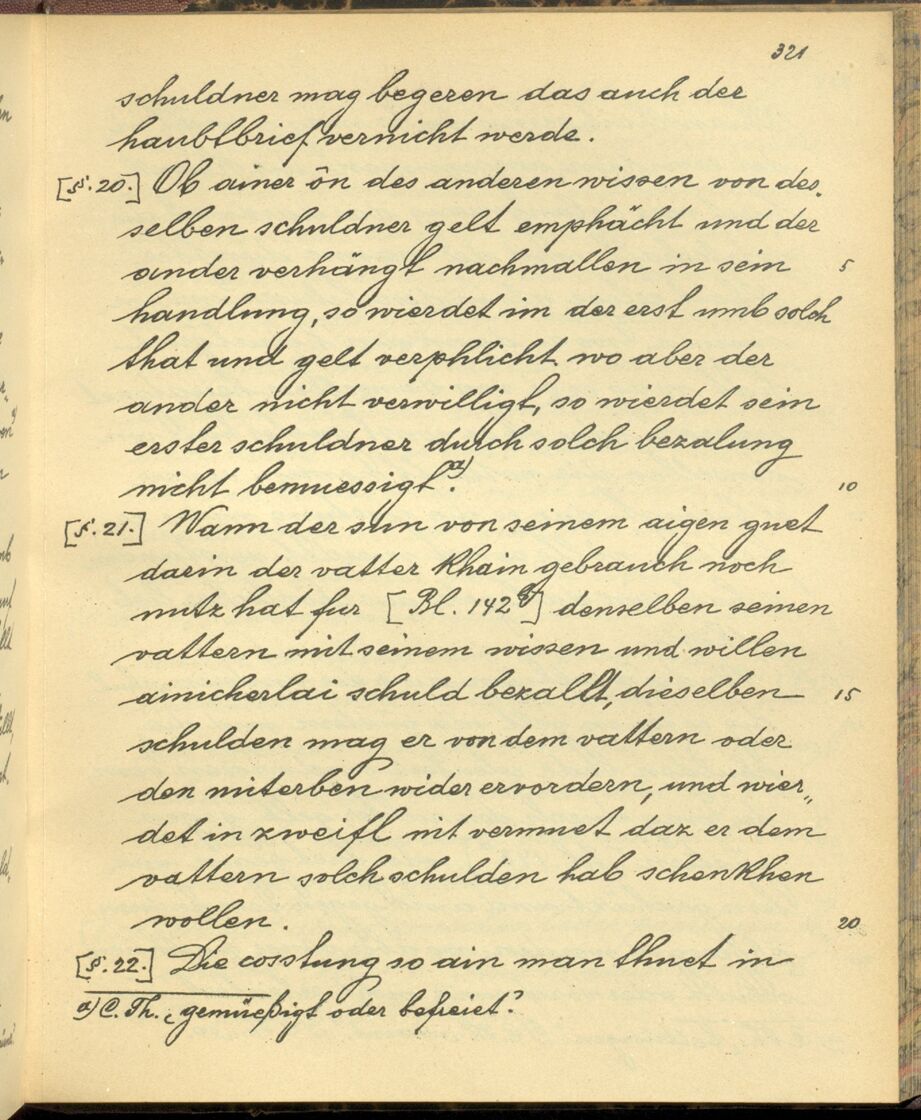 321
schuldner mag begeren das auch der
haubtbrief vernicht werde.
[§. 20.] Ob ainer ôn des anderen wissen von des„
selben schuldner gelt emphächt und der
ander verhängt nachmallen in sein 5
handlung, so wierdet im der erst umb solch
that und gelt verphlicht wo aber der
ander nicht verwilligt, so wierdet sein
erster schuldner durch solch bezalung
nicht bemuessigt a). 10
[§. 21.] Wann der sun von seinem aigen guet
darin der vatter khain gebrauch noch
nutz hat fur [Bl. 142 b] denselben seinen
vattern mit seinem wissen und willen
ainicherlai schuld bezallt, dieselben 15
schulden mag er von dem vattern oder
den miterben wider ervordern, und wier„
det in zweifl nit vermuet daz er dem
vattern solch schulden hab schenkhen
wollen. 20
[§. 22.] Die cosstung so ain man thuet in
a) C. Th. „gemüeßigt oder befreiet“.